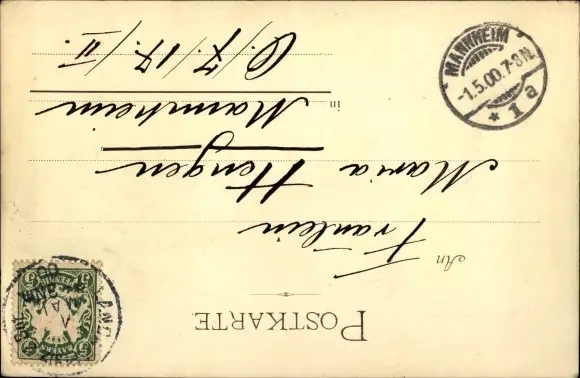 POSTKARTE
An
Fräulein
Maria Hengen
in Mannheim
C./7./17./II.
MANNHEIM
-1.5.00.7-8N.
* 1 a
BAYERN